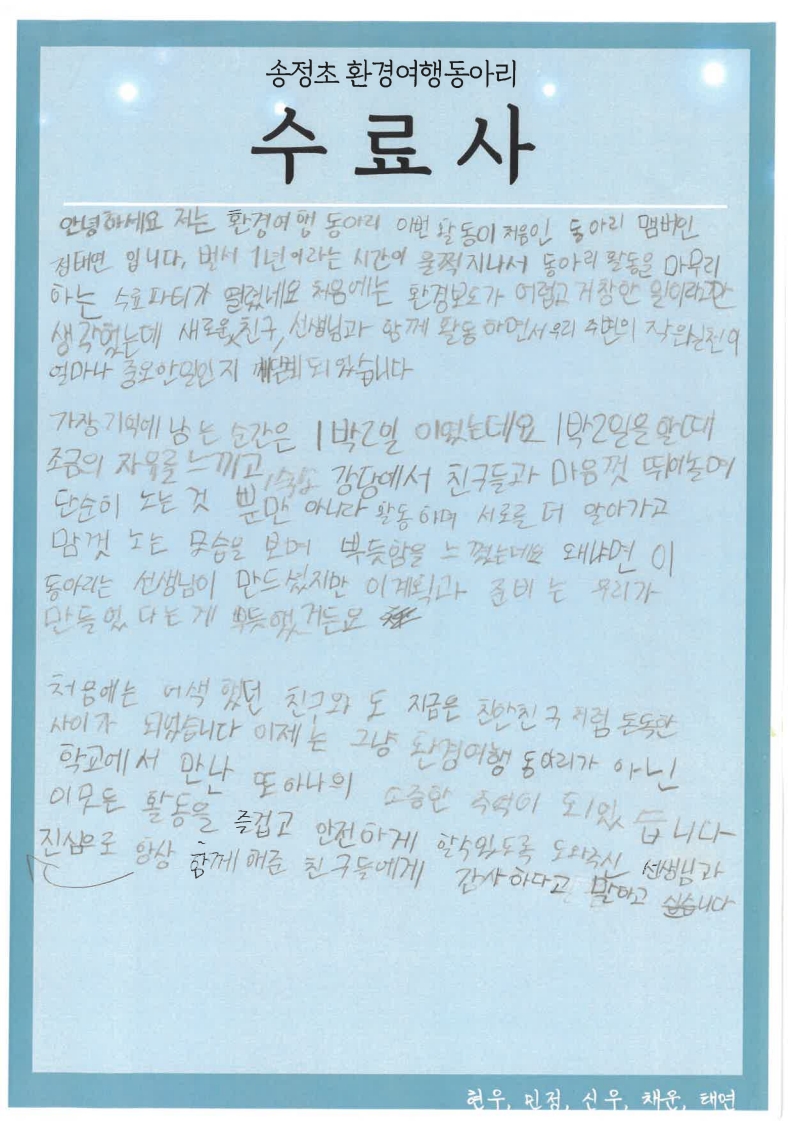 송정초 환경여행동아리
수료사
안녕하세요 저는 환경여행 동아리 이번 활동이 처음인 동아리 맴버인
태연 입니다, 벌서 1년이라는 시간이 훌쩍지나서 동아리 활동을 마무리
하는 수료파티가 열렸네요 처음에는 환경보호가 어렵고 거창한 일이라고만
생각했는데 새로운 친구, 선생님과 함께 활동 하면서 우리 주변의 작은 실천이
얼마나 중요한일인지 되었습니다
가장 기억에 남는 순간은 1박2일 이였는데요 1박2일을 할때
조금의 자유를 느끼고 강당에서 친구들과 마음껏 뛰어놀며
단순히 노는 것 뿐만 아니라 활동하며 서로를 더 알아가고
맘껏 노는 모습을 보며 뿌듯함을 느꼈는데요 왜냐면 이
동아리는 선생님이 만드셨지만 이계획과 준비는 우리가
만들었다는게 뿌듯했거든요
처음에는 어색했던 친구와도 지금은 친한친구처럼 돈독한
사이가 되었습니다 이제는 그냥 환경여행 동아리가 아닌
학교에서 만난 또하나의 소중한 추억이 되었습니다
이모든 활동을 즐겁고 안전하게 할수있도록 도와주신 선생님과
진심으로 항상 함께해준 친구들에게 감사하다고 말하고 싶습니다
현우, 민점, 신우, 채운, 태연